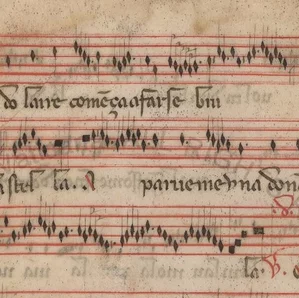 do laire começa a farse bru
stel la. A parueme yna don
la. V.